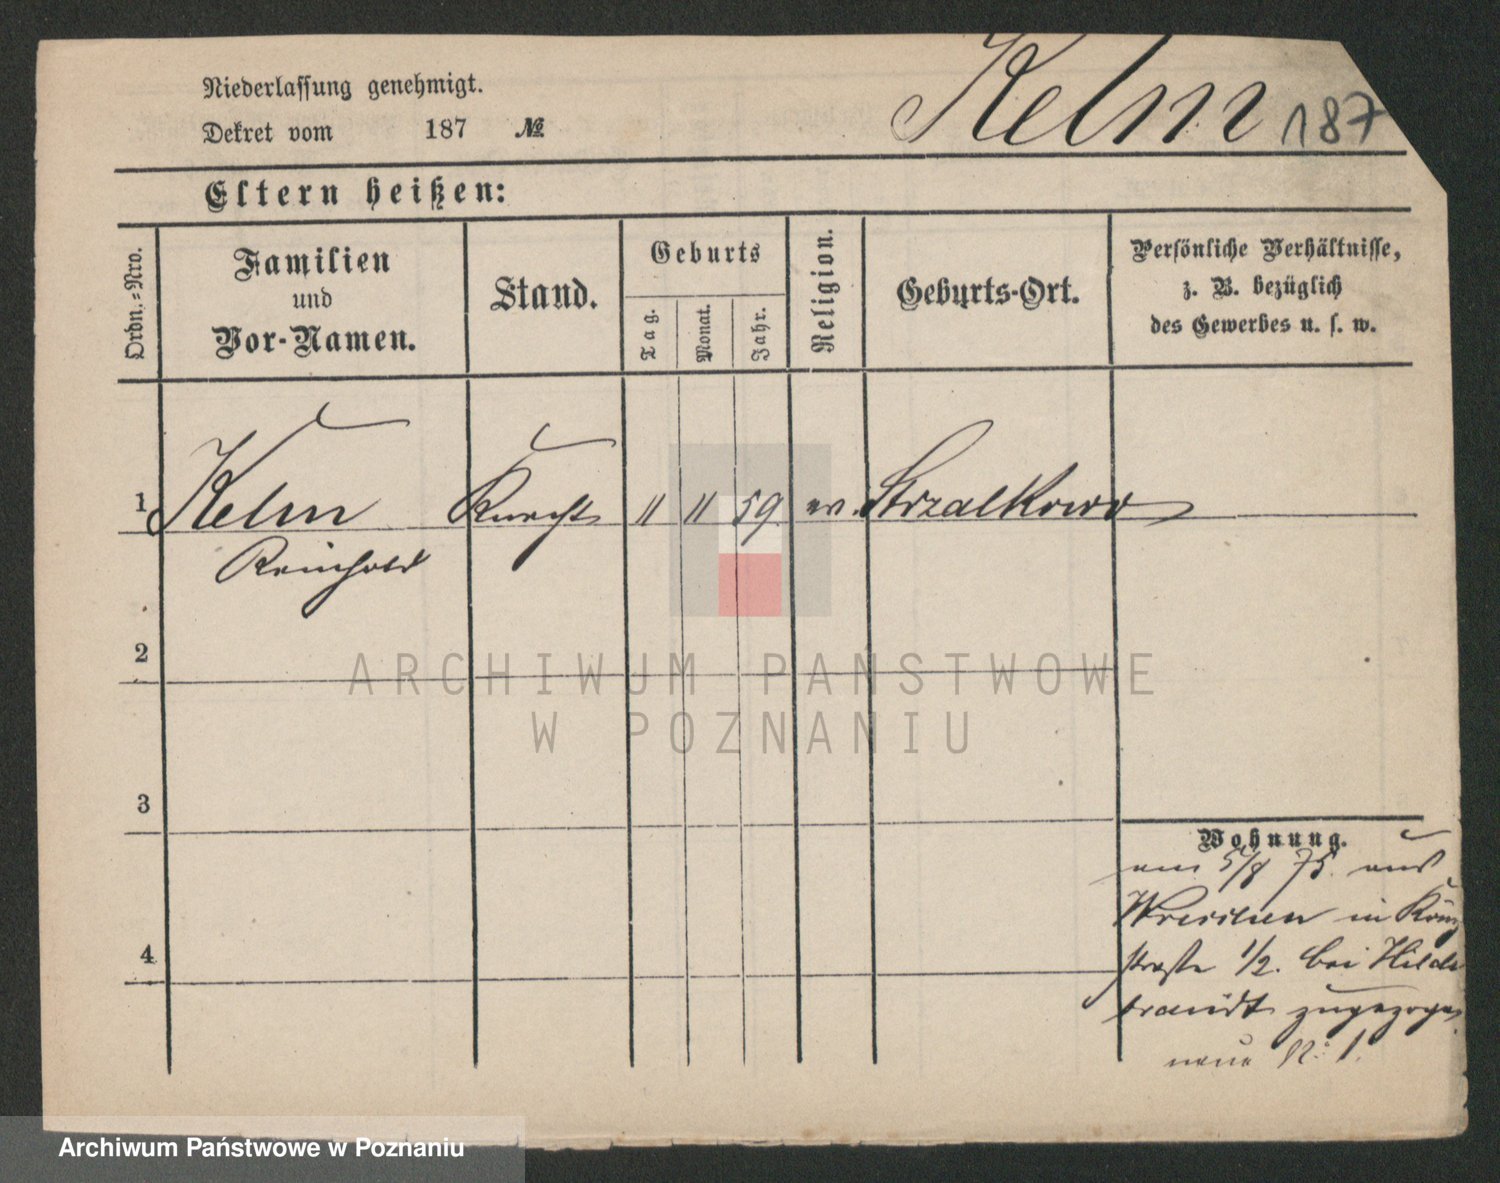 Niederlassung genehmigt.
Dekret vom 187 №
Kelm 187
Eltern heißen:
Ordn.=Nro.
Familien
und
Vor-Namen.
Stand.
Geburts
Tag.
Monat.
Jahr.
Religion.
Geburts-Ort.
Persönliche Verhältnisse,
z. B. bezüglich
des Gewerbes u. s. w.
1 Kelm Knecht 11 11 59 ev. Strzalkowo
Reinhold
2
ARCHIWUM PAŃSTWOWE
W POZNANIU
3
Wohnung.
am 5/8 75. aus
Wreschen in
straße 1/2. bei Hilde
brandt zugezogen
neue N: 1.
4
Archiwum Państwowe w Poznaniu